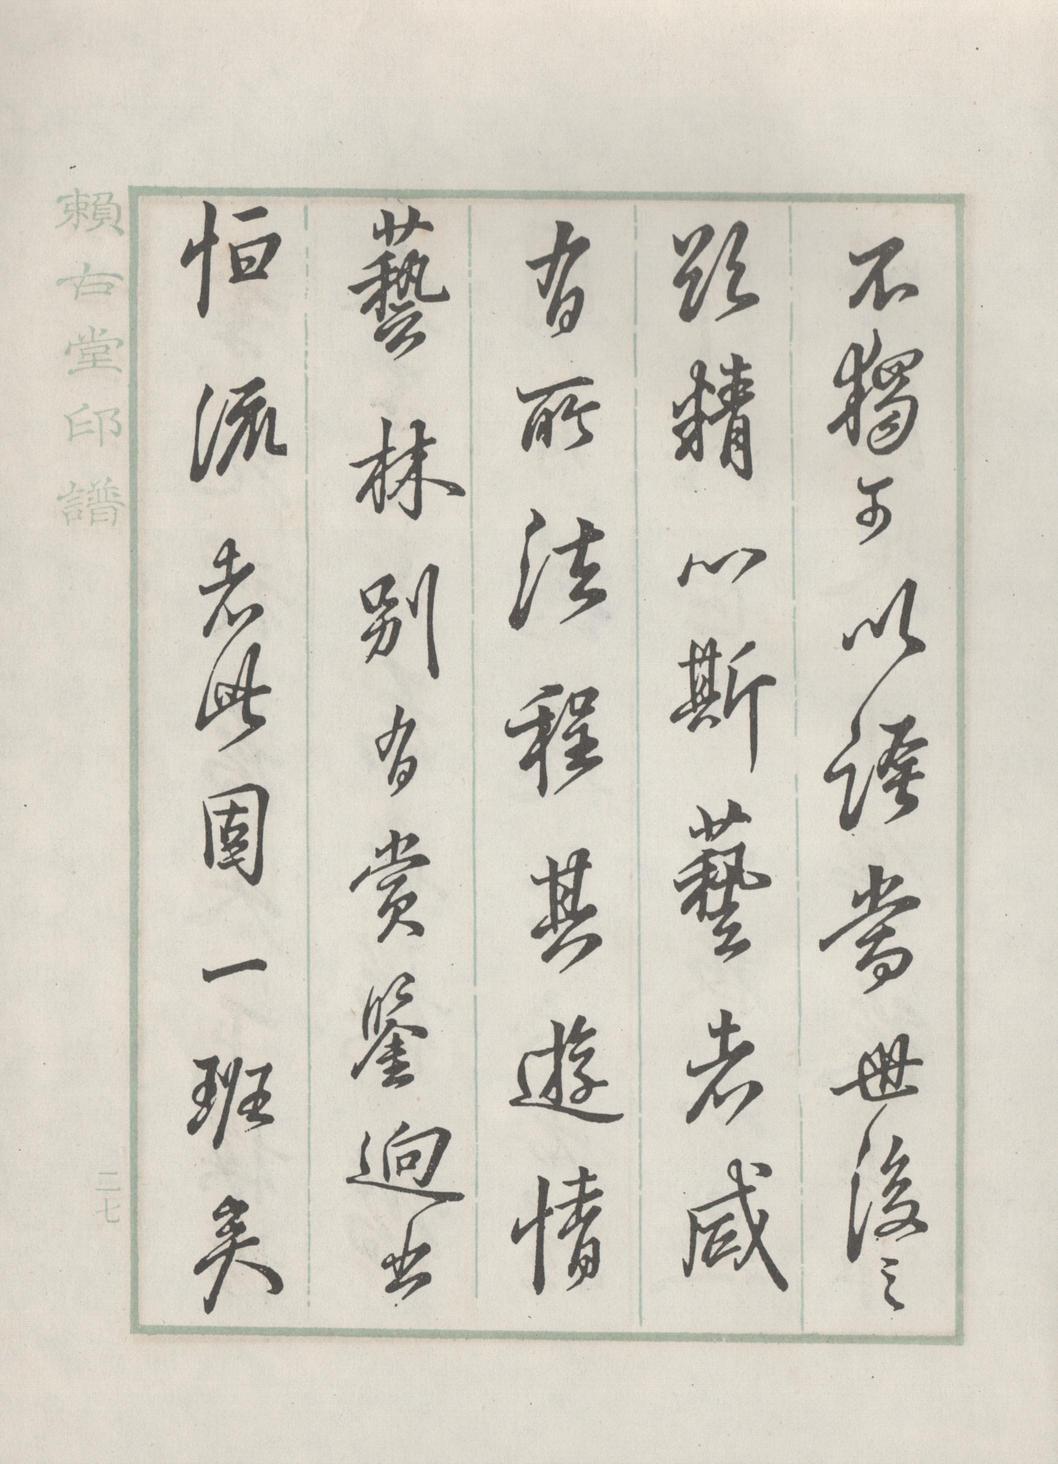 不獨可以誇當世後之
欲精心斯藝者咸
有所法程其遊情
藝林別有賞鑒迥出
恒流者此固一班矣
賴古堂印譜
二七